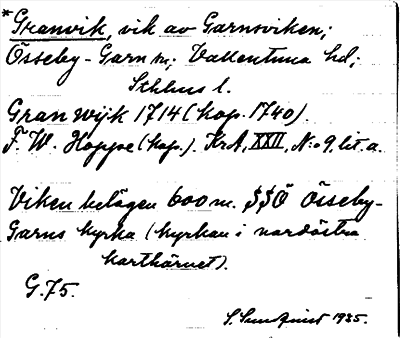 *Granvik, vik av Garnsviken;
Össeby-Garn sn; Vallentuna hd;
Sthlms l.
Gran wijk 1714 (kop. 1740).
F. W. Hoppe (kop.). KrA, XXII, N:o 9, lit. a.
Viken belägen 600 m. SSÖ Össeby-
Garns kyrka (kyrkan i nordöstra
karthörnet).
G. 75.
S. Sundquist 1935.